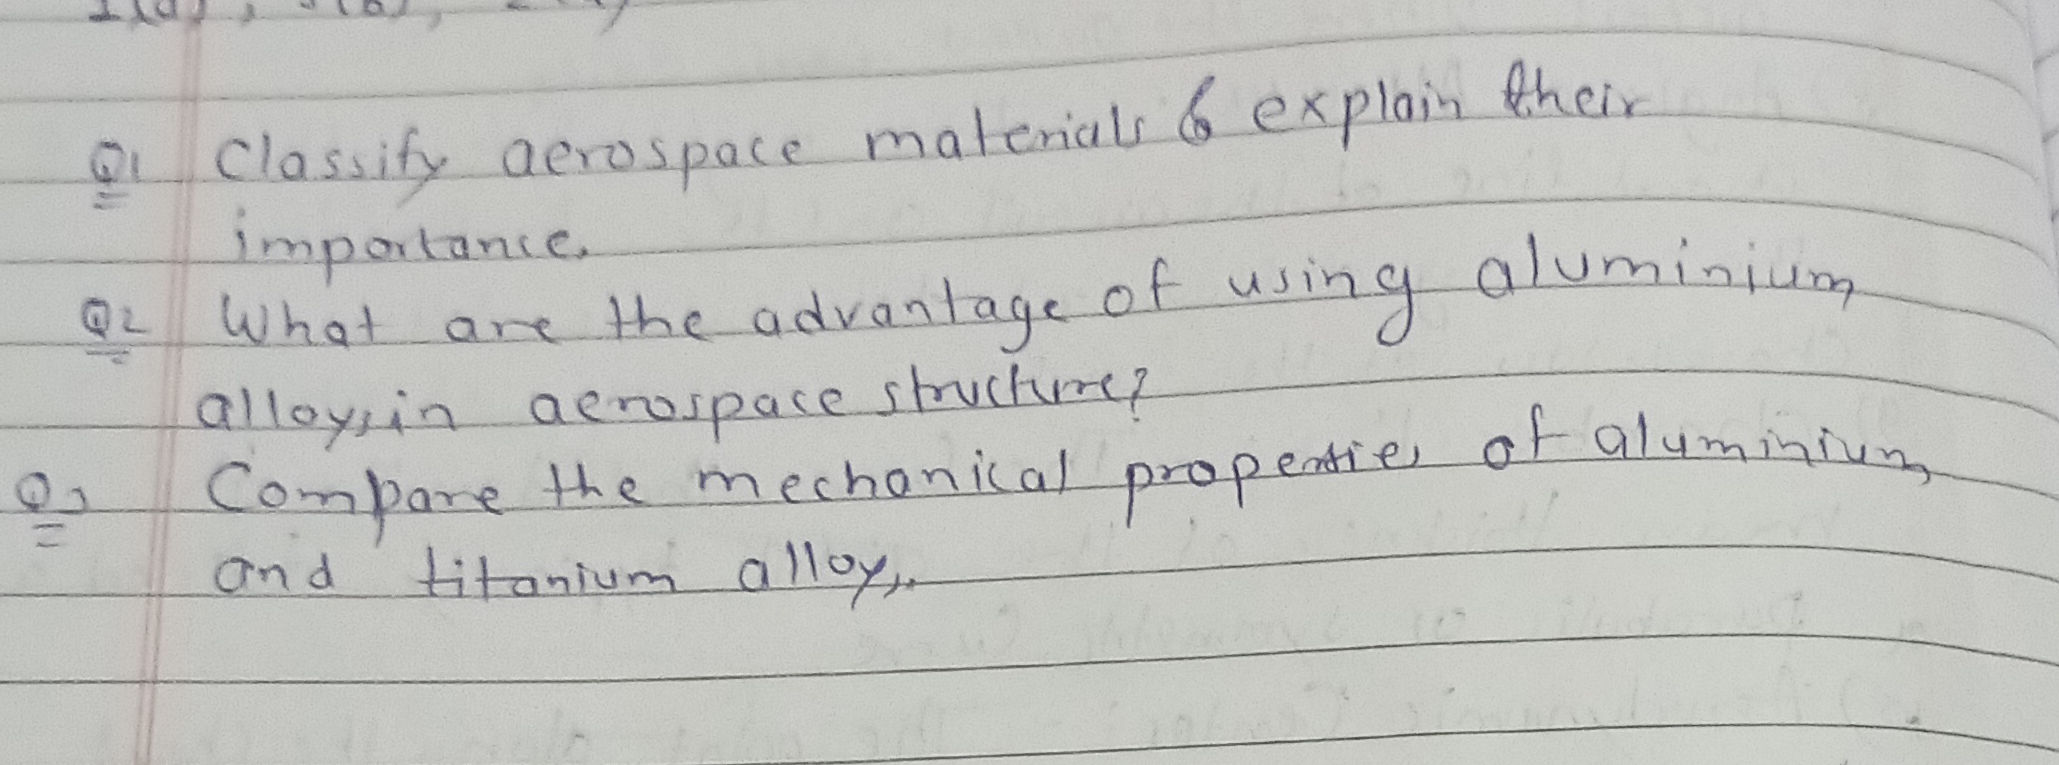 Q1 Classify aerospace materials & explain their
importance.
Q2 What are the advantage of using aluminium
alloys in aerospace structure?
Q3 Compare the mechanical properties of aluminium
and titanium alloys.